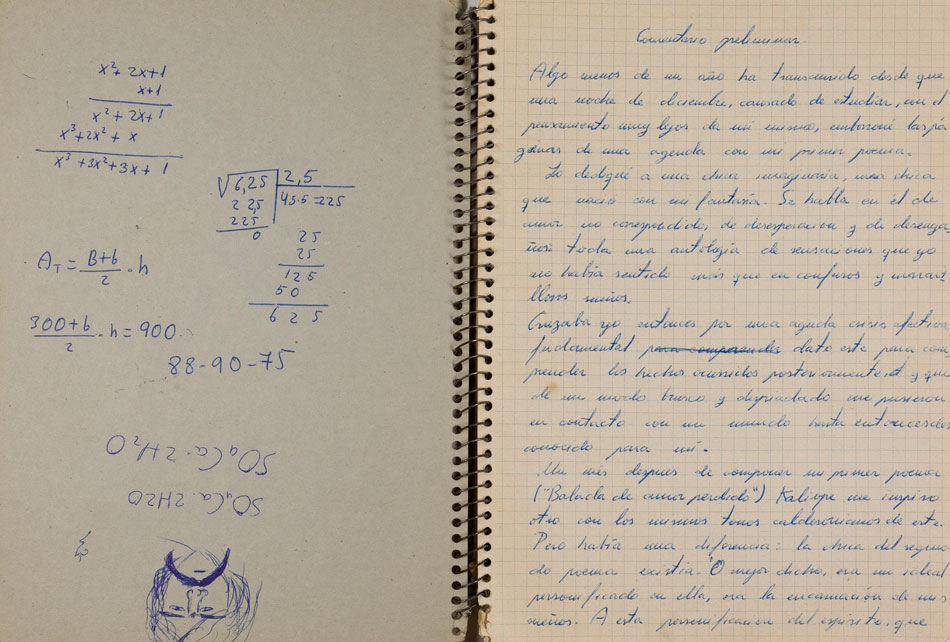 x² + 2x + 1
x + 1
x² + 2x + 1
x³ + 2x² + x
x³ + 3x² + 3x + 1
√6,25 2,5
2 2,5 45·5=225
225
0
25
25
125
50
625
A_T = B+b/2 · h
300+b/2 · h = 900
88-90-75
SO₄Ca·2H₂O
SO₄Ca·2H2O
Comentario preliminar
Algo menos de un año ha transcurrido desde que
una noche de diciembre, cansado de estudiar, con el
pensamiento muy lejos de mi mismo, emborroné las pá-
ginas de una agenda con mi primer poema.
Lo dediqué a una chica imaginaria, una chica
que nació con mi fantasía. Se habla en él de
amor no correspondido, de desesperación y de desenga-
ños; toda una antología de sensaciones que yo
no había sentido más que en confusos y maravi-
llosos sueños.
Cruzaba yo entonces por una aguda crisis afectiva,
fundamental para comprender dato este para com-
prender los hechos ocurridos posteriormente, y que
de un modo brusco y despiadado me pusieron
en contacto con un mundo hasta entonces des-
conocido para mí.
Un mes despues de componer mi primer poema
("Balada de amor perdido") Kaliope me inspiro
otro con los mismos tonos de este.
Pero había una diferencia: la chica del segun-
do poema existía. O mejor dicho, era un ideal
personificado en ella, era la encarnación de mis
sueños. A esta personificacion del espíritu, que